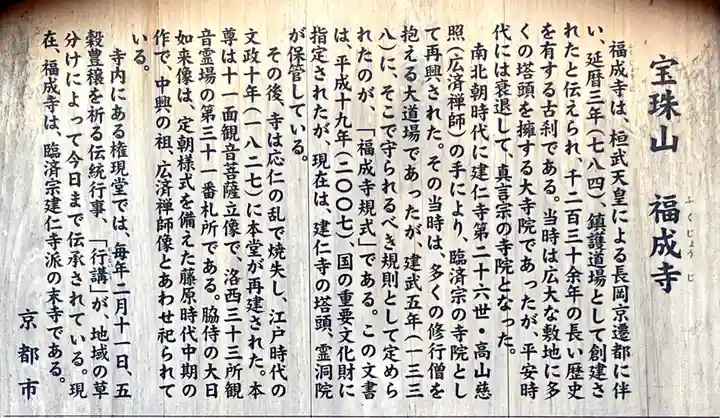 宝珠山　福成寺
ふくじょうじ
福成寺は、桓武天皇による長岡京遷都に伴
い、延暦三年(七八四)、鎮護道場として創建さ
れたと伝えられ、千二百三十余年の長い歴史
を有する古刹である。当時は広大な敷地に多
くの塔頭を擁する大寺院であったが、平安時
代には衰退して、真言宗の寺院となった。
南北朝時代に建仁寺第二十六世・高山慈
照(広済禅師)の手により、臨済宗の寺院とし
て再興された。その当時は、多くの修行僧を
抱える大道場であったが、建武五年(一三三
八)に、そこで守られるべき規則として定めら
れたのが、「福成寺規式」である。この文書
は、平成十九年(二〇〇七)、国の重要文化財に
指定されたが、現在は、建仁寺の塔頭、霊洞院
が保管している。
その後、寺は応仁の乱で焼失し、江戸時代の
文政十年(一八二七)に本堂が再建された。本
尊は十一面観音菩薩立像で、洛西三十三所観
音霊場の第三十一番札所である。脇侍の大日
如来像は、定朝様式を備えた藤原時代中期の
作で、中興の祖、広済禅師像とあわせ祀られて
いる。
寺内にある権現堂では、毎年二月十一日、五
穀豊穣を祈る伝統行事、「行講」が、地域の草
分けによって今日まで伝承されている。現
在、福成寺は、臨済宗建仁寺派の末寺である。
京都市